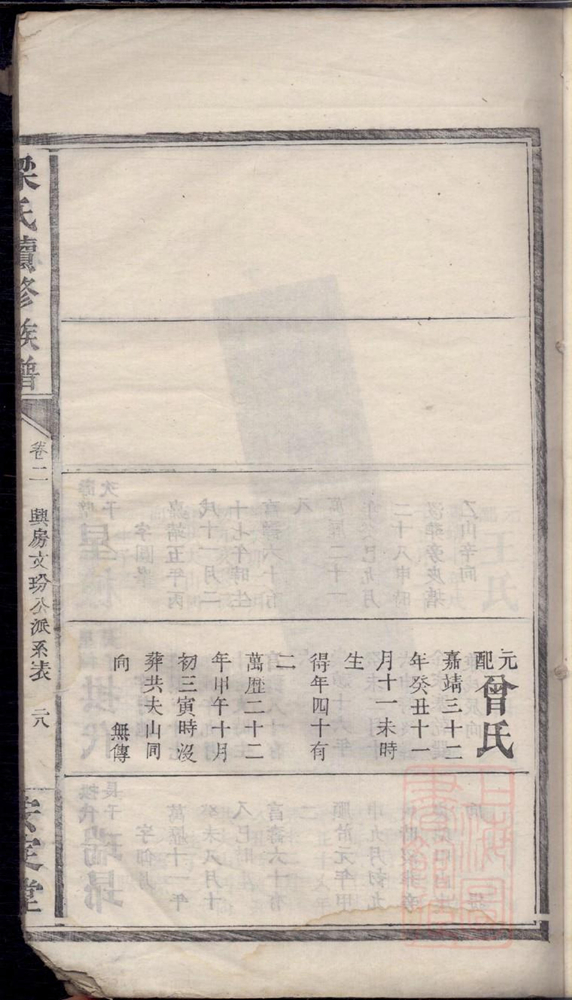 元配
曾氏
嘉靖三十二
年癸丑十一
月十一未時
生
得年四十有
二
萬歷二十二
年甲午十月
初三寅時沒
葬共夫山同
向　無傳
梁氏續修族譜
卷二
興房文玢公派系表
元
安定堂